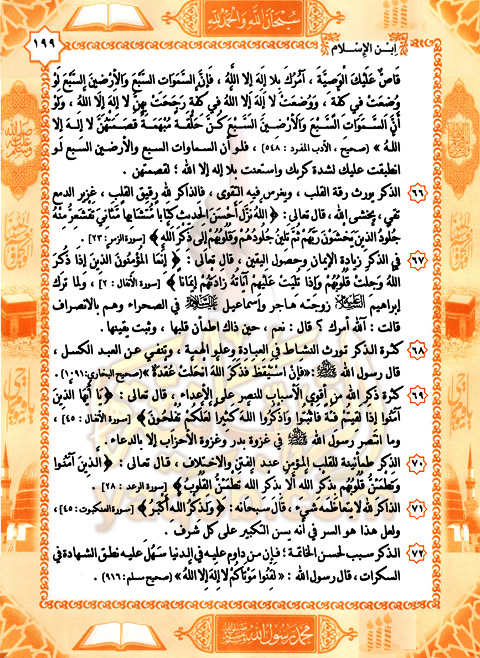 سبحان الله والحمد لله
١٩٩
ابن الإسلام
قاصٌ عَلَيكَ الوَصِيَّةَ ، آمُرُكَ بلا إله إلا الله ، فَإنَّ السَّمَوَات السَّبْعَ وَالأَرْضِينَ السَّبْعَ لَوْ
وُضعَتْ في كفَّة ، وَوُضِعَتْ لا إله إلا الله في كفَّة رَجَحَتْ بهنَّ لا إلهَ إلاَّ الله ، وَلَوْ
أنَّ السَّمَوَات السَّبْعَ وَالأرْضينَ السَّبْعَ كُنَّ حَلْقَةً مُبْهَمَةً قَصَمَتْهُنَّ لا إلهَ إلا
اللهُ » [صحيح ، الأدب المفرد : ٥٤٨] ، فلو أن السماوات السبع والأرضين السبع لو
انطبقت عليك لشدة كربك واستعنت بلا إله إلا الله ؛ لقصمتهن .
٦٦ الذكر يورث رقة القلب ، ويغرس فيه التقوى ، فالذاكر لله رقيق القلب ، غزير الدمع
تقي ، يخشى الله ، قال تعالى : ﴿ اللهُ نَزَّلَ أَحْسَنَ الْحَديث كتَابًا مُتَشَابهًا مَثَانيَ تَقْشَعرُّ مِنْهُ
جُلُودُ الذينَ يَخْشَوْنَ رَبَّهُمْ ثُمَّ تَلينُ جُلُودُهُمْ وَقُلُوبُهُمْ إلى ذكْر الله ﴾ [سورة الزمر : ٢٣] .
٦٧ في الذكر زيادة الإيمان وحصول اليقين ، قال تعالى : ﴿ إنَّمَا الْمُؤْمنُونَ الذينَ إذَا ذُكرَ
اللهُ وَجلَتْ قُلُوبُهُمْ وَإذَا تُليَتْ عَلَيْهمْ آيَاتُهُ زَادَتْهُمْ إيمَاناً ﴾ [سورة الأنفال : ٢] ، ولما ترك
إبراهيم عليه السلام زوجته هاجر وإسماعيل عليه السلام في الصحراء وهم بالانصراف
قالت : آلله أمرك ؟ قال : نعم ، حين ذاك اطمأن قلبها ، وثبت يقينها .
٦٨ كثرة الذكر تورث النشاط في العبادة وعلو الهمة ، وتنفي عن العبد الكسل ،
قال رسول الله ﷺ : «فَإِنْ اسْتَيْقَظَ فَذَكَرَ اللهَ انْحَلَّتْ عُقْدَةٌ» [صحيح البخاري : ١٠٩١] .
٦٩ كثرة ذكر الله من أقوى الأسباب للنصر على الأعداء ، قال تعالى : ﴿ يَا أَيُّهَا الذينَ
آمَنُوا إذَا لَقيتُمْ فئَةً فَاثْبُتُوا وَاذْكُرُوا اللهَ كَثيرًا لَعَلَّكُمْ تُفْلحُونَ ﴾ [سورة الأنفال : ٤٥] ،
وما انتصر رسول الله ﷺ في غزوة بدر وغزوة الأحزاب إلا بالدعاء .
٧٠ الذكر طمأنينة للقلب المؤمن عند الفتن والاختلاف ، قال تعالى : ﴿ الذينَ آمَنُوا
وَتَطْمَئنُّ قُلُوبُهُم بذكْر الله أَلا بذكْر الله تَطْمَئنُّ الْقُلُوبُ ﴾ [سورة الرعد : ٢٨] .
٧١ الذكر لله لا يتعاظمه شيء ، قال سبحانه : ﴿ وَلَذكْرُ الله أَكْبَرُ ﴾ [سورة العنكبوت : ٤٥] ،
ولعل هذا هو السر في أنه يسن التكبير على كل شرف .
٧٢ الذكر سبب لحسن الخاتمة ؛ فإن من داوم عليه في الدنيا سَهُلَ عليه نطق الشهادة في
السكرات ، قال رسول الله : « لَقِّنُوا مَوْتَاكُمْ لا إلهَ إلا اللهُ » [صحيح مسلم : ٩١٦] .
محمد رسول الله ﷺ